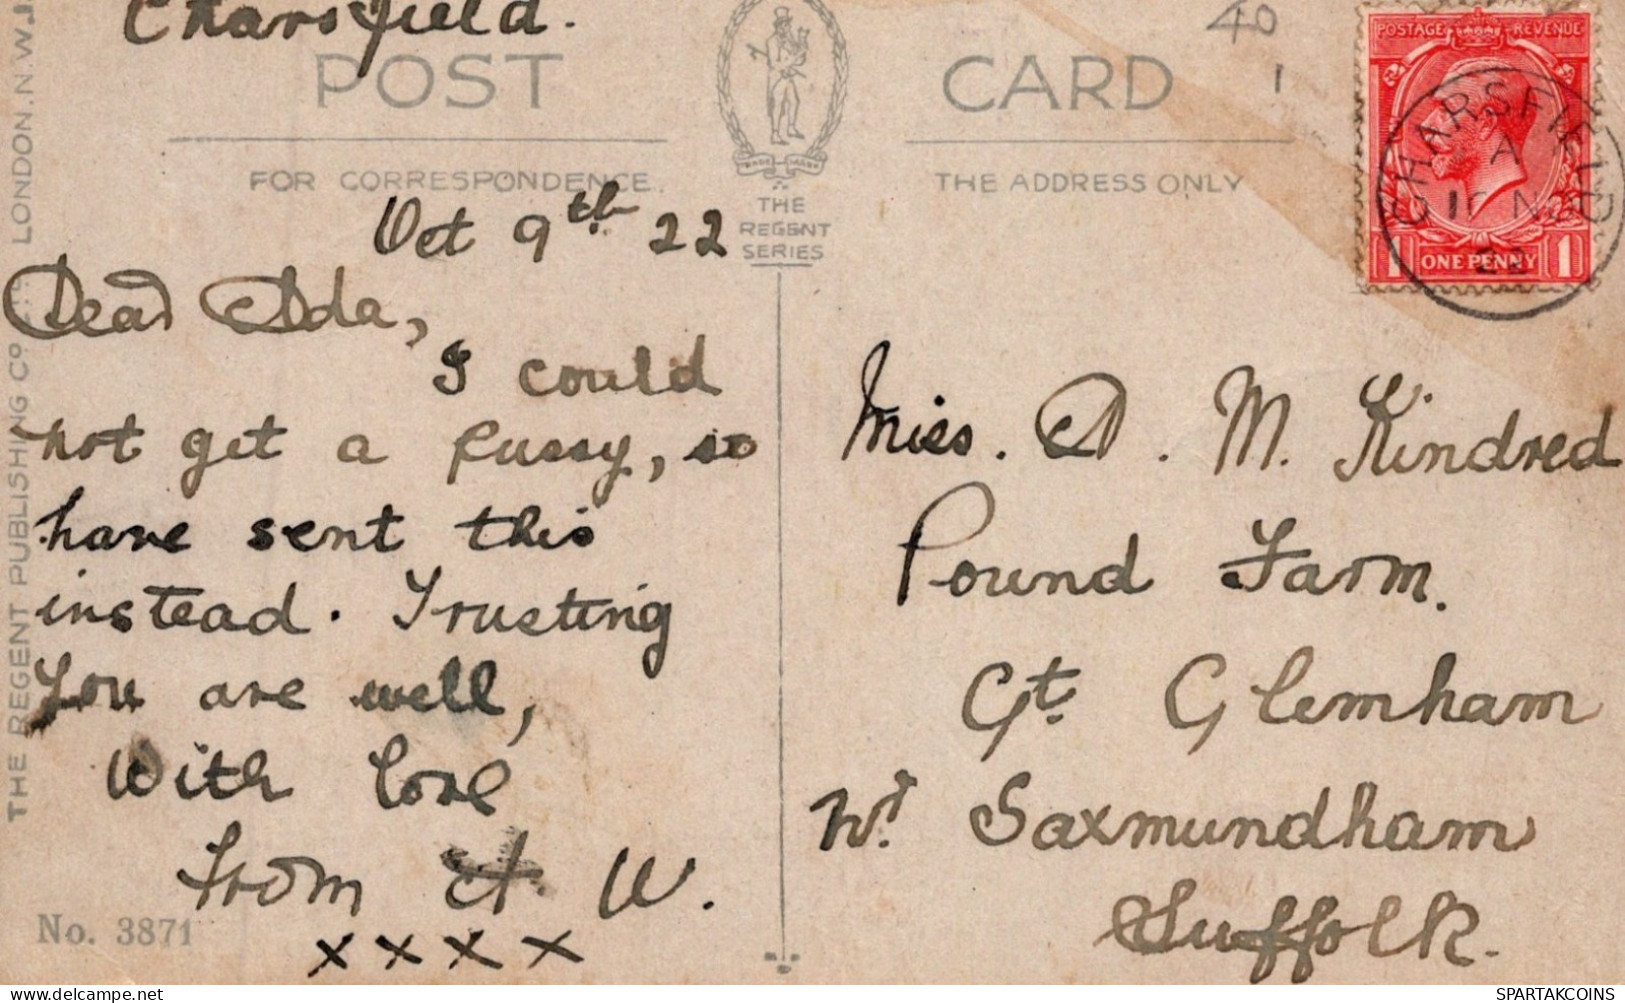 Charsfield.
POST CARD
FOR CORRESPONDENCE
THE ADDRESS ONLY
THE
REGENT
SERIES
TRADE MARK
40
1
POSTAGE REVENUE
ONE PENNY
1 1
CHARSFIELD
A
22
Oct 9th 22
Dear Ada,
I could
not get a pussy, so
have sent this
instead. Trusting
you are well,
With love
from A. W.
x x x x
Miss. A. M. Kindred
Pound Farm.
Gt. Glemham
Nr. Saxmundham
Suffolk.
THE REGENT PUBLISHING Co LONDON. N.W.
No. 3871
www.delcampe.net
SPARTAKCOINS